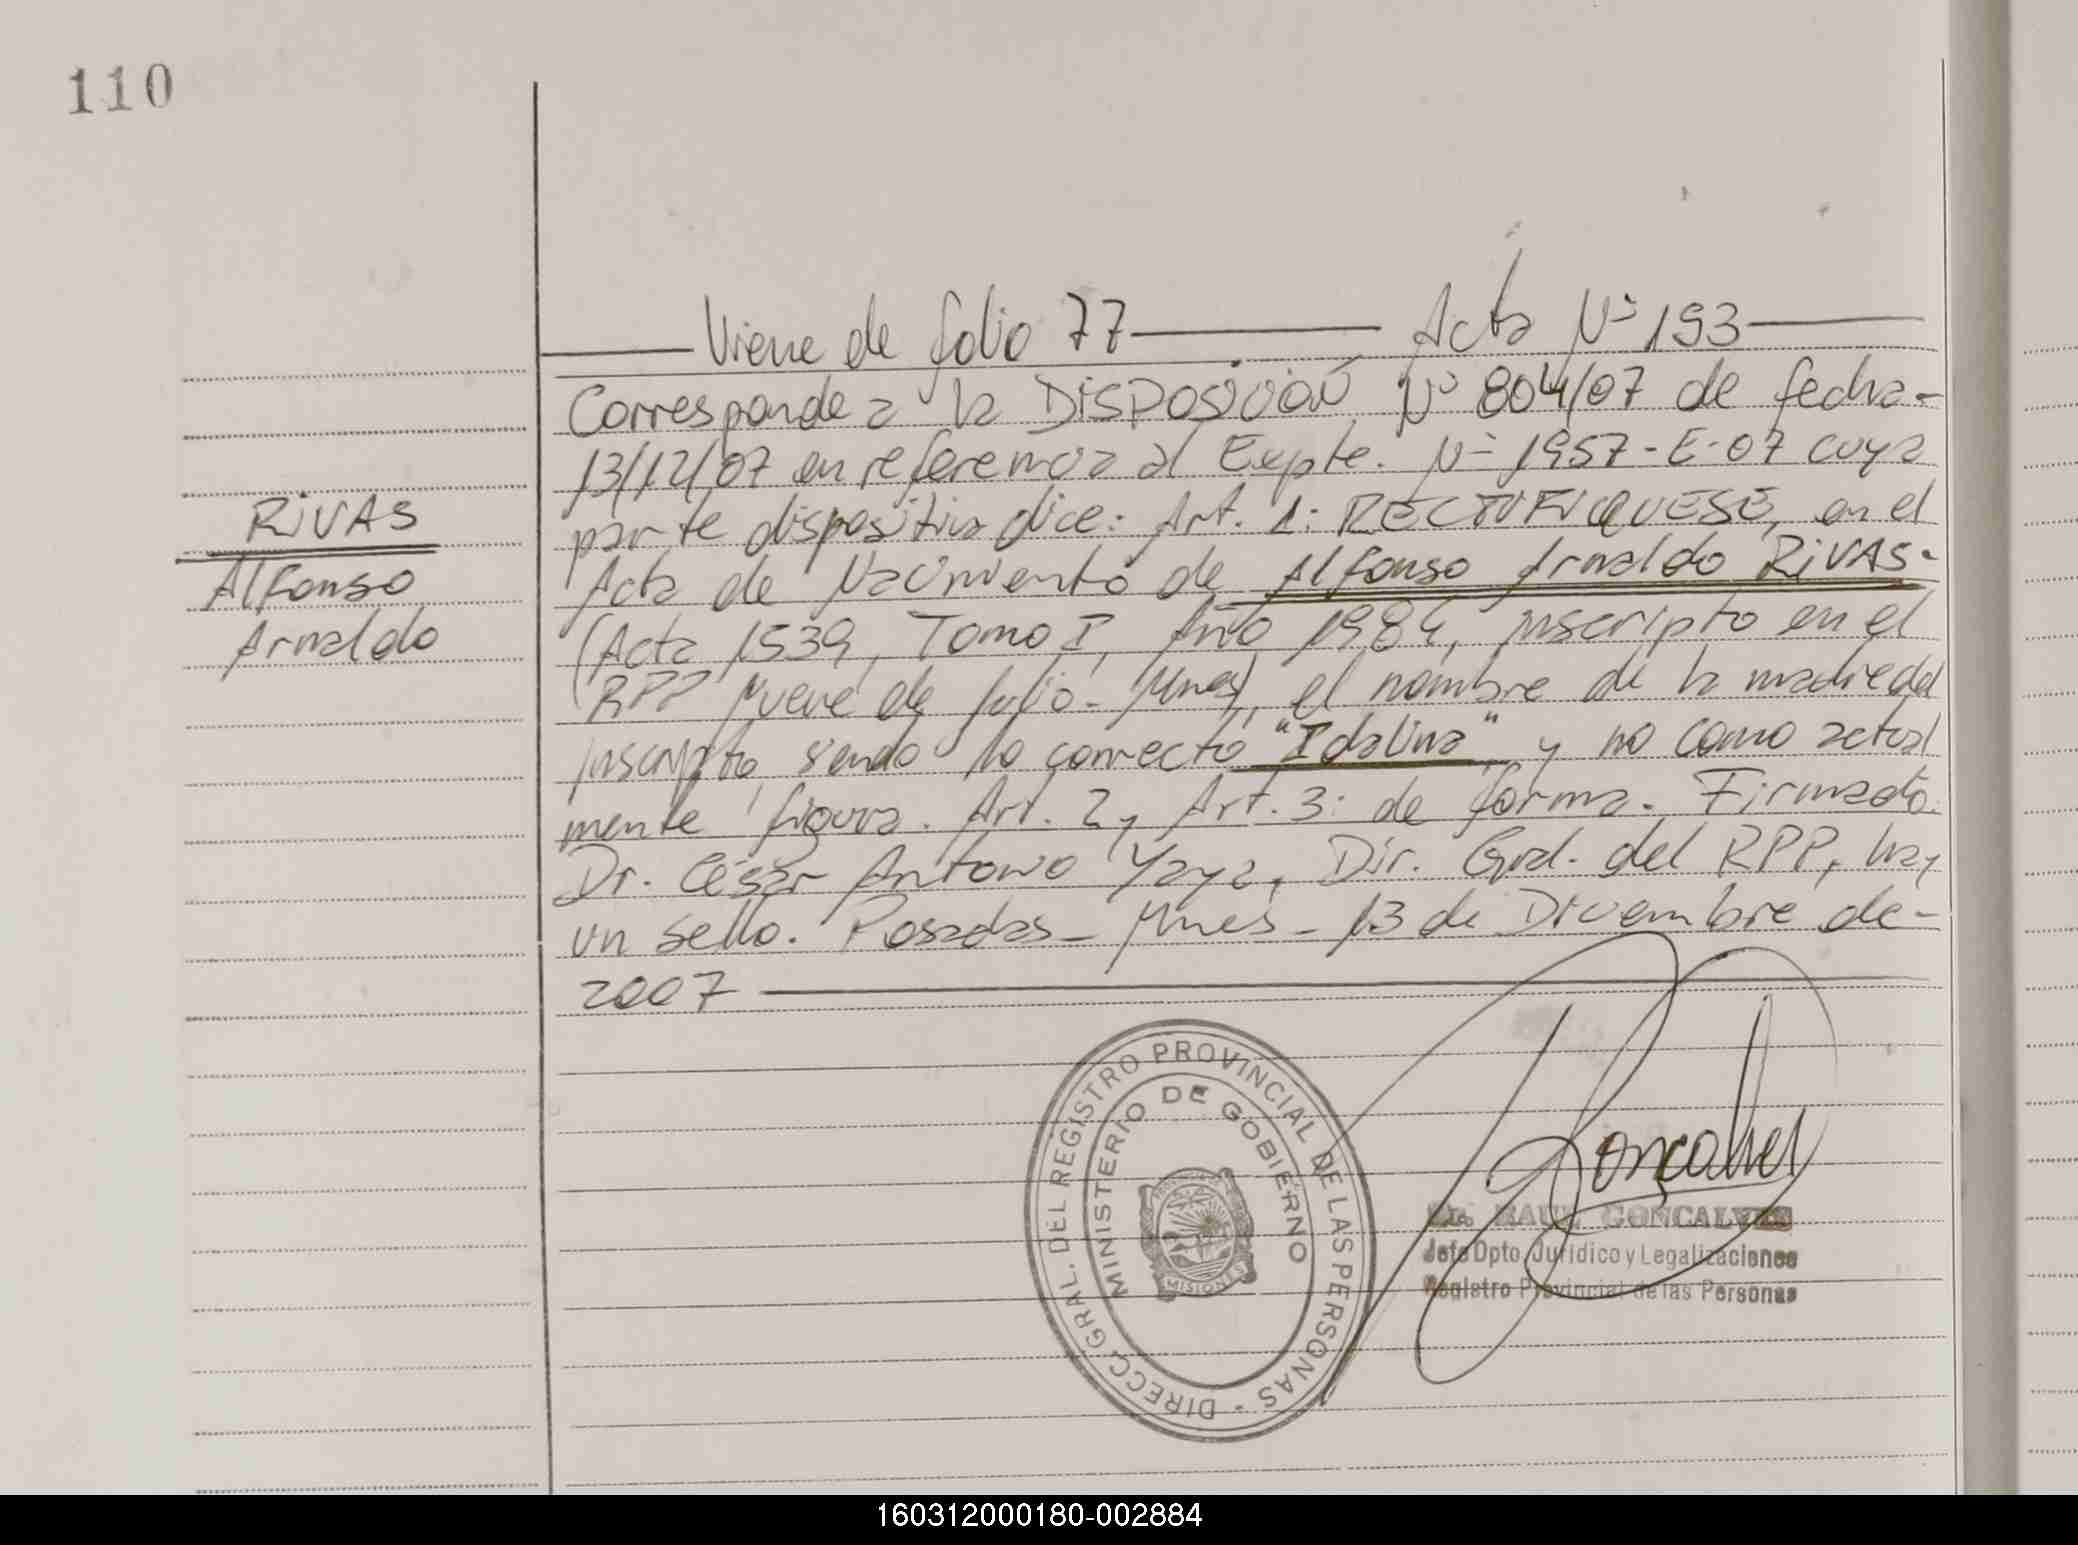 110
Viene de folio 77 Acta Nº 193
Corresponde a la DISPOSICIÓN Nº 804/07 de fecha-
13/12/07 en referencia al Expte. Nº 1957-E-07 cuya
parte dispositiva dice: Art. 1: RECTIFIQUESE, en el
RIVAS
Alfonso
Arnaldo
Acta de Nacimiento de Alfonso Arnaldo RIVAS-
(Acta 1539, Tomo I, Año 1984, inscripto en el
RPP Nueve de Julio- Mnes), el nombre de la madre del
inscripto, siendo lo correcto "Idalina" y no como actual
mente figura. Art. 2 y Art. 3: de forma. Firmado:
Dr. César Antonio Yaya, Dir. Gral. del RPP, hay
un sello. Posadas- Mnes- 13 de Diciembre de-
2007
DIRECC. GRAL. DEL REGISTRO PROVINCIAL DE LAS PERSONAS -
MINISTERIO DE GOBIERNO
MISIONES
Gonçalves
Dr. RAUL GONCALVES
Jefe Dpto. Jurídico y Legalizaciones
Registro Provincial de las Personas
160312000180-002884